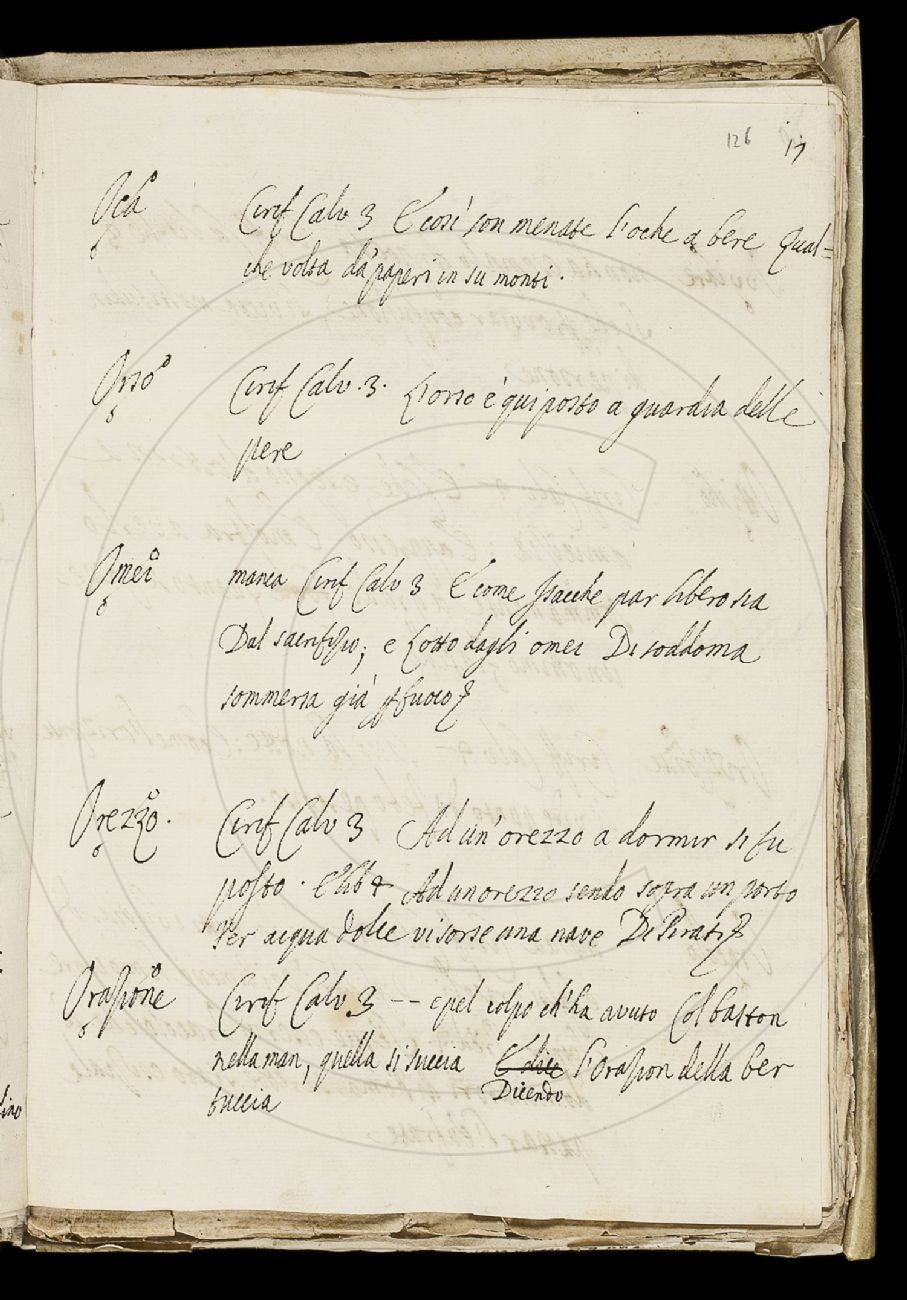 126 17
Oca Cirif Calv 3 E così son menate l'oche a bere Qual=
che volta da' paperi in su monti.
Orso Cirif Calv. 3. L'orso è qui posto a guardia delle
pere
Omei manca Cirif Calv 3 E come Isacche par libero sia
Dal sacrifizio; e Lotto dagli omei Di soddoma
sommersa già p fuoco
Orezzo. Cirif Calv 3 Ad un' orezzo a dormir si fu
posto. E lib 4 Ad un orezzo sendo sopra un porto
Per acqua dolce vi sorse una nave Di Pirati
Orazione Cirif Calv 3 -- e pel colpo ch'ha avuto Col baston
nella man, quella si succia E dice l'Orazion della ber
Dicendo
tuccia